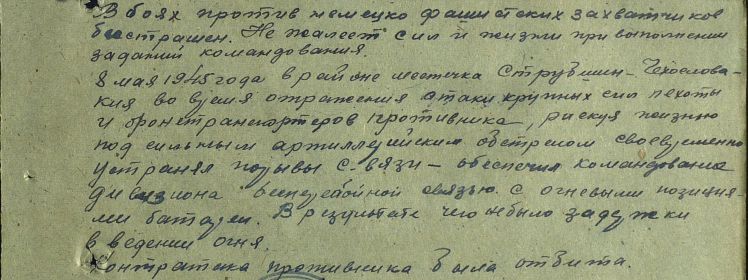 В боях против немецко фашистских захватчиков
бесстрашен. Не жалеет сил и жизни при выполнении
заданий командования.
8 мая 1945 года в районе местечка Струвшин - Чехослова-
кия во время отражения атаки крупных сил пехоты
и бронетранспортеров противника, рискуя жизнью
под сильным артиллерийским обстрелом своевременно
устраняя порывы связи - обеспечил командование
дивизиона бесперебойной связью с огневыми позиция-
ми батарей. В результате чего не было задержки
в ведении огня.
Контратака противника была отбита.